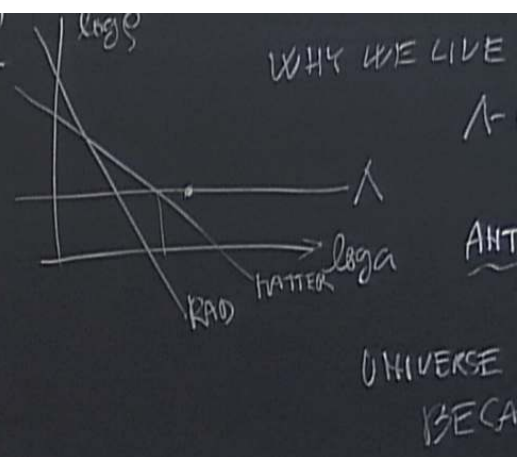 logρ
WHY WE LIVE
Λ-
Λ
loga
MATTER
RAD
ANT
UNIVERSE
BECA